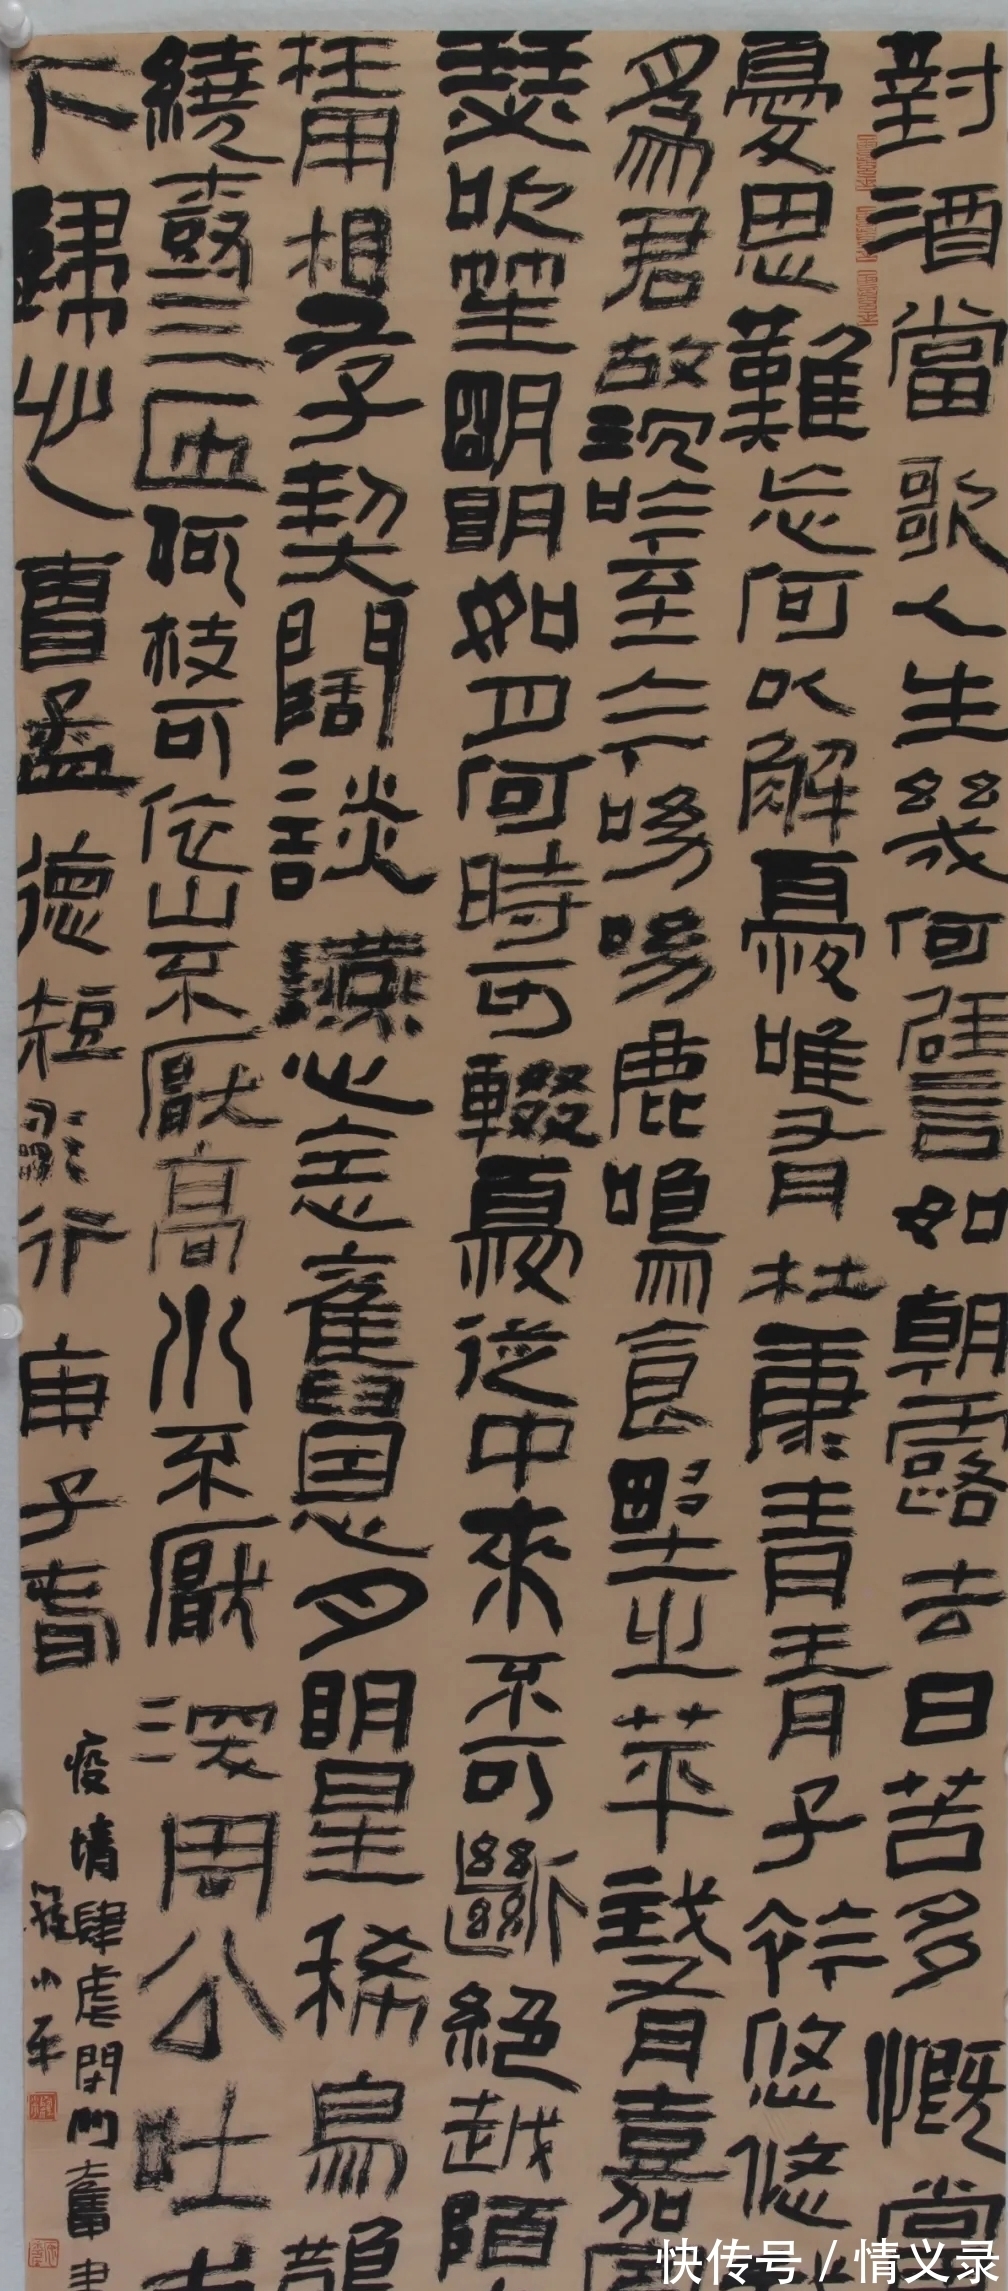 對酒當歌人生幾何譬如朝露去日苦多慨當
憂思難忘何以解憂唯有杜康青青子衿悠悠
為君故沉吟至今下呦呦鹿鳴食野之苹我有嘉
瑟吹笙明明如月何時可輟憂從中來不可斷絕越陌
枉用相存契闊談讌心念舊恩月明星稀烏鵲
繞樹三匝何枝可依山不厭高水不厭深周公吐
下歸心 曹孟德短歌行 庚子春
疫情肆虐閉門奮書
羅小平
快传号/情义录